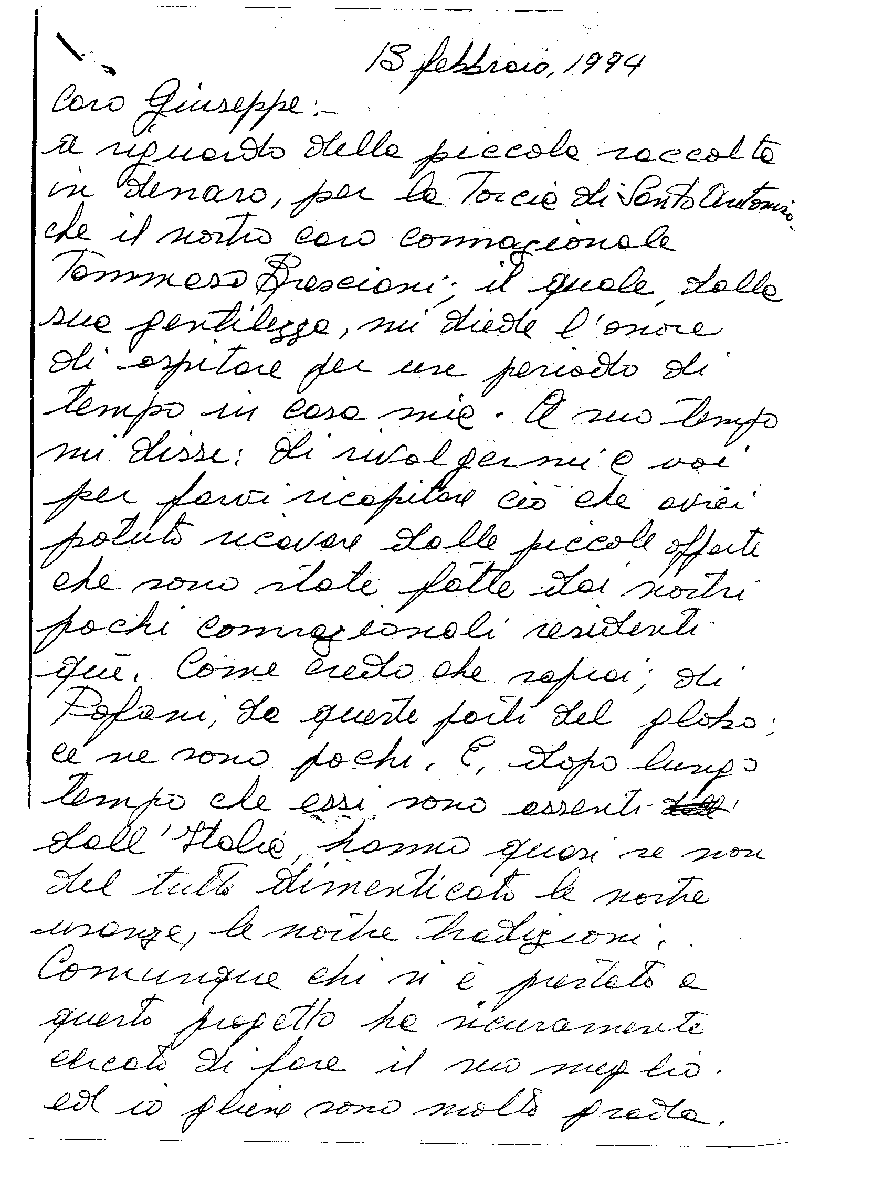 13 febbraio, 1994
Caro Giuseppe:-
a riguardo della piccola raccolta
in denaro, per la Torcia di Santo Antonio.
che il nostro caro connazionale
Tommaso Brascioni; il quale, dalla
sua gentilezza, mi diede l'onore
di ospitare per un periodo di
tempo in casa mia. A suo tempo
mi disse: di rivolgermi a voi
per farvi ricapitare ciò che avrei
potuto ricavare dalle piccole offerte
che sono state fatte dai nostri
pochi connazionali residenti
quì. Come credo che saprai; di
Pofani, da queste parti del globo;
ce ne sono pochi. E, dopo lungo
tempo che essi sono assenti
dall'Italia, hanno quasi se non
del tutto dimenticato le nostre
usanze, le nostre tradizioni.
Comunque chi si è prestato a
questo progetto ha sicuramente
cercato di fare il suo meglio.
ed io gliene sono molto grata.